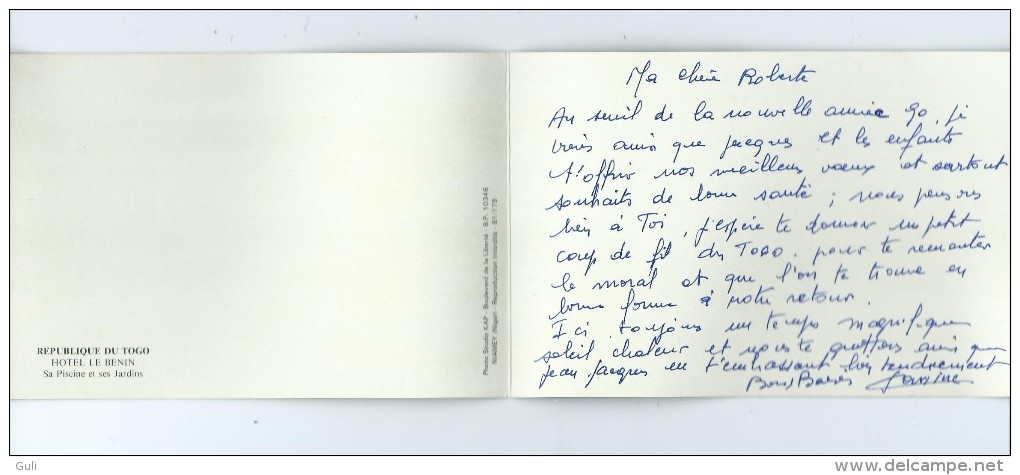 REPUBLIQUE DU TOGO
HOTEL LE BENIN
Sa Piscine et ses Jardins
Photo Studio KAP - Boulevard de la Liberté - B.P. 10346
NIAMEY (Niger) - Reproduction Interdite - 81/179
Ma chère Roberte
Au seuil de la nouvelle année 90, je
viens ainsi que Jacques et les enfants
t'offrir nos meilleurs voeux et surtout
souhaits de bonne santé ; nous pensons
bien à Toi, j'espère te donner un petit
coup de fil du TOGO, pour te remonter
le moral et que l'on te trouve en
bonne forme à notre retour.
Ici toujours un temps magnifique
soleil, chaleur et nous te quittons ainsi que
Jean Jacques en t'embrassant bien tendrement
Bons Baisers
Guli
www.delcampe.net